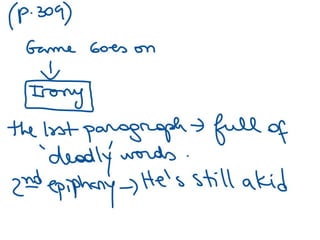 (p.309)
Game Goes on
↓
Irony
the last paragraph → full of
'deadly' words.
2nd epiphany → He's still a kid